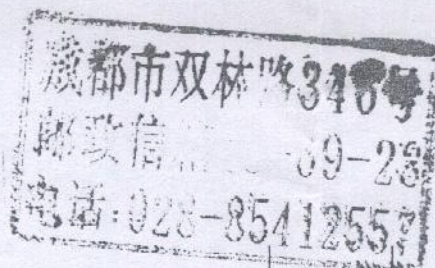 成都市双林路34号
邮政信 -39-23
电话:028-8541255